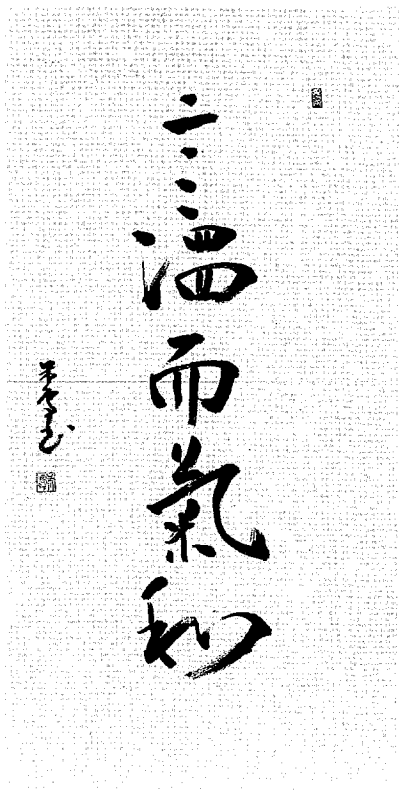 言温而氣和